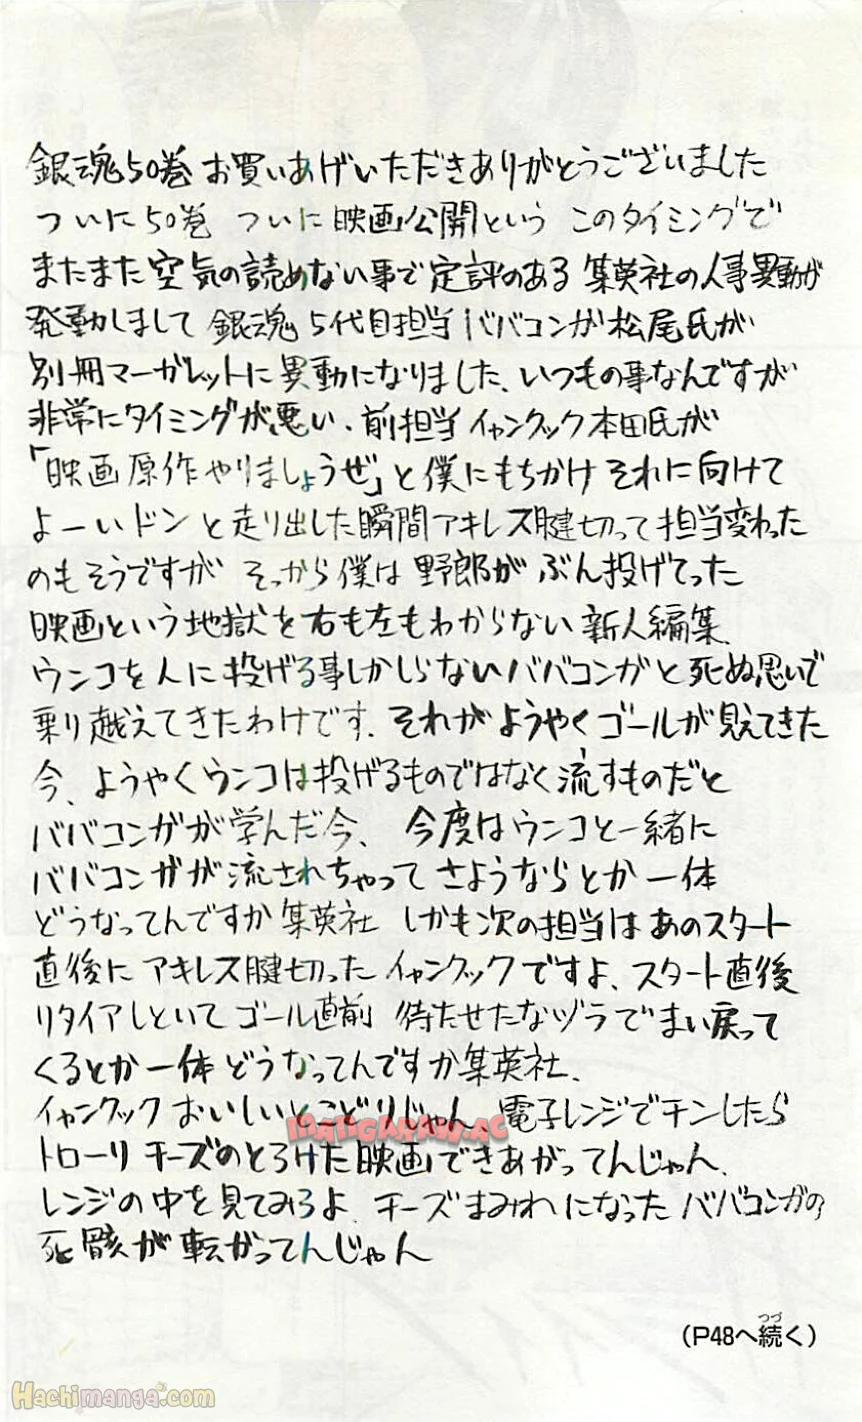 銀魂50巻 お買いあげいただきありがとうございました
ついに50巻 ついに映画公開という このタイミングで
またまた空気の読めない事で定評のある 集英社の人事異動が
発動しまして 銀魂 5代目担当 ババコンガ松尾氏が
別冊マーガレットに異動になりました、いつもの事なんですが
非常にタイミングが悪い、前担当 イャンクック本田氏が
「映画原作やりましょうぜ」と僕にもちかけ それに向けて
よーいドンと走り出した瞬間アキレス腱切って担当変わった
のもそうですが そっから僕は野郎が ぶん投げてった
映画という地獄を右も左もわからない新人編集、
ウンコを人に投げる事しかしらないババコンガと死ぬ思いで
乗り越えてきたわけです、それがようやくゴールが見えてきた
今、ようやくウンコは投げるものではなく流すものだと
ババコンガが学んだ今、 今度はウンコと一緒に
ババコンガが流されちゃって さようならとか一体
どうなってんですか集英社 しかも次の担当はあのスタート
直後にアキレス腱切ったイャンクックですよ、スタート直後
リタイアしといてゴール直前 待たせたなヅラでまい戻って
くるとか一体どうなってんですか集英社、
イャンクック おいしいとこどりじゃん 電子レンジでチンしたら
トローリ チーズのとろけた映画できあがってんじゃん、
レンジの中を見てみろよ、チーズまみれになった ババコンガの
死骸が転がってんじゃん
MANGARAW.AC
つづ
(P48へ続く)
Hachimanga.com